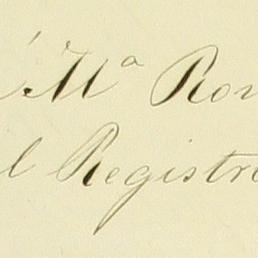 Mª Rom
l Registro